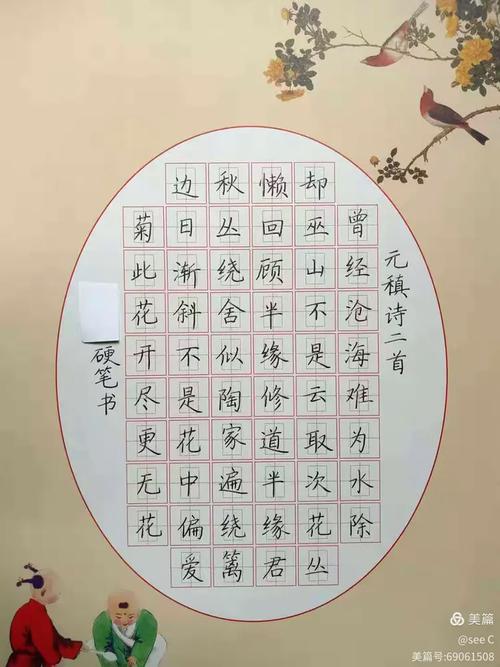 元稹诗二首
曾经沧海难为水除
却巫山不是云取次花丛
懒回顾半缘修道半缘君
秋丛绕舍似陶家遍绕篱
边日渐斜不是花中偏爱
菊此花开尽更无花
硬笔书
美篇
@see C
美篇号:69061508